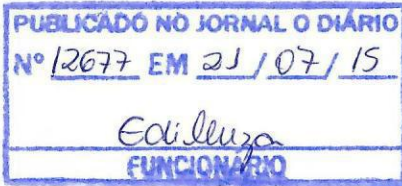 PUBLICADO NO JORNAL O DIÁRIO
Nº 12677 EM 21/07/15
Edilleuza
FUNCIONÁRIO